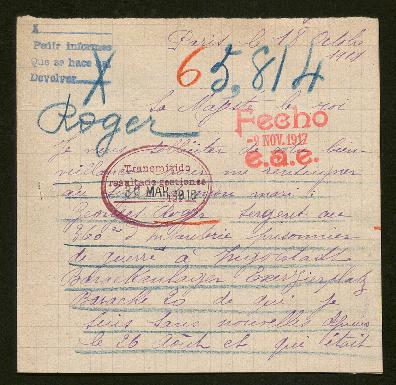 A
Pedir informes
Que se hace
Devolver
X
Paris, le 18 Octobre
1917
65,814
Roger
Sa Majesté le roi
Fecho
-9 NOV. 1917
e.a.e.
Je viens solliciter votre bien-
veillance me renseigner
Transmitido
resultado gestiones
29 MAR 1918
au mon mari
Georges Roger sergent au
360me d'infanterie prisonnier
de guerre à Ingolstadt
Barackenlager Exerzierplatz
Baracke 20 de qui je
suis sans nouvelles depuis
le 26 Août et qui était